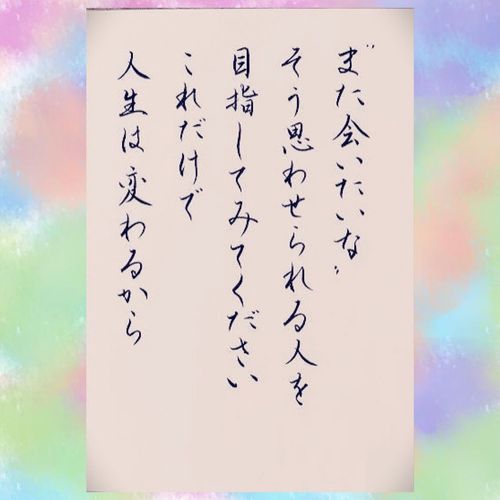 "また会いたいな"
そう思わせられる人を
目指してみてください
これだけで
人生は変わるから